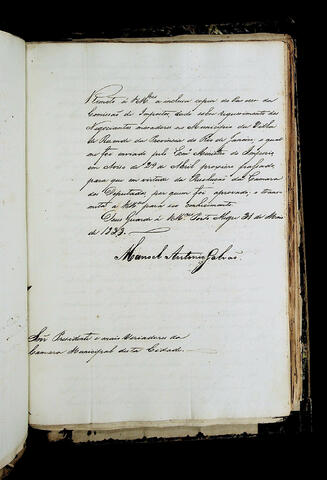 Remeto á VMces a inclusa copia do Parecer da
Comissão de Impostos, dado sobre requerimento dos
Negociantes moradores no Municipio da Villa
de Rezende da Provincia do Rio de Janeiro, o qual
me foi enviado pelo Exmo Ministro do Imperio
em Aviso de 29 de Abril proximo passado,
para que em virtude da Resolução da Camara
dos Deputados, por quem foi aprovado, o trans-
mita a VMces para seu conhecimento.
Deus Guarde á VMces Porto Alegre 31 de Maio
de 1833.
Manoel Antonio Galvão.
Snr Presidente e mais Vereadores da
Camara Municipal desta Cidade.